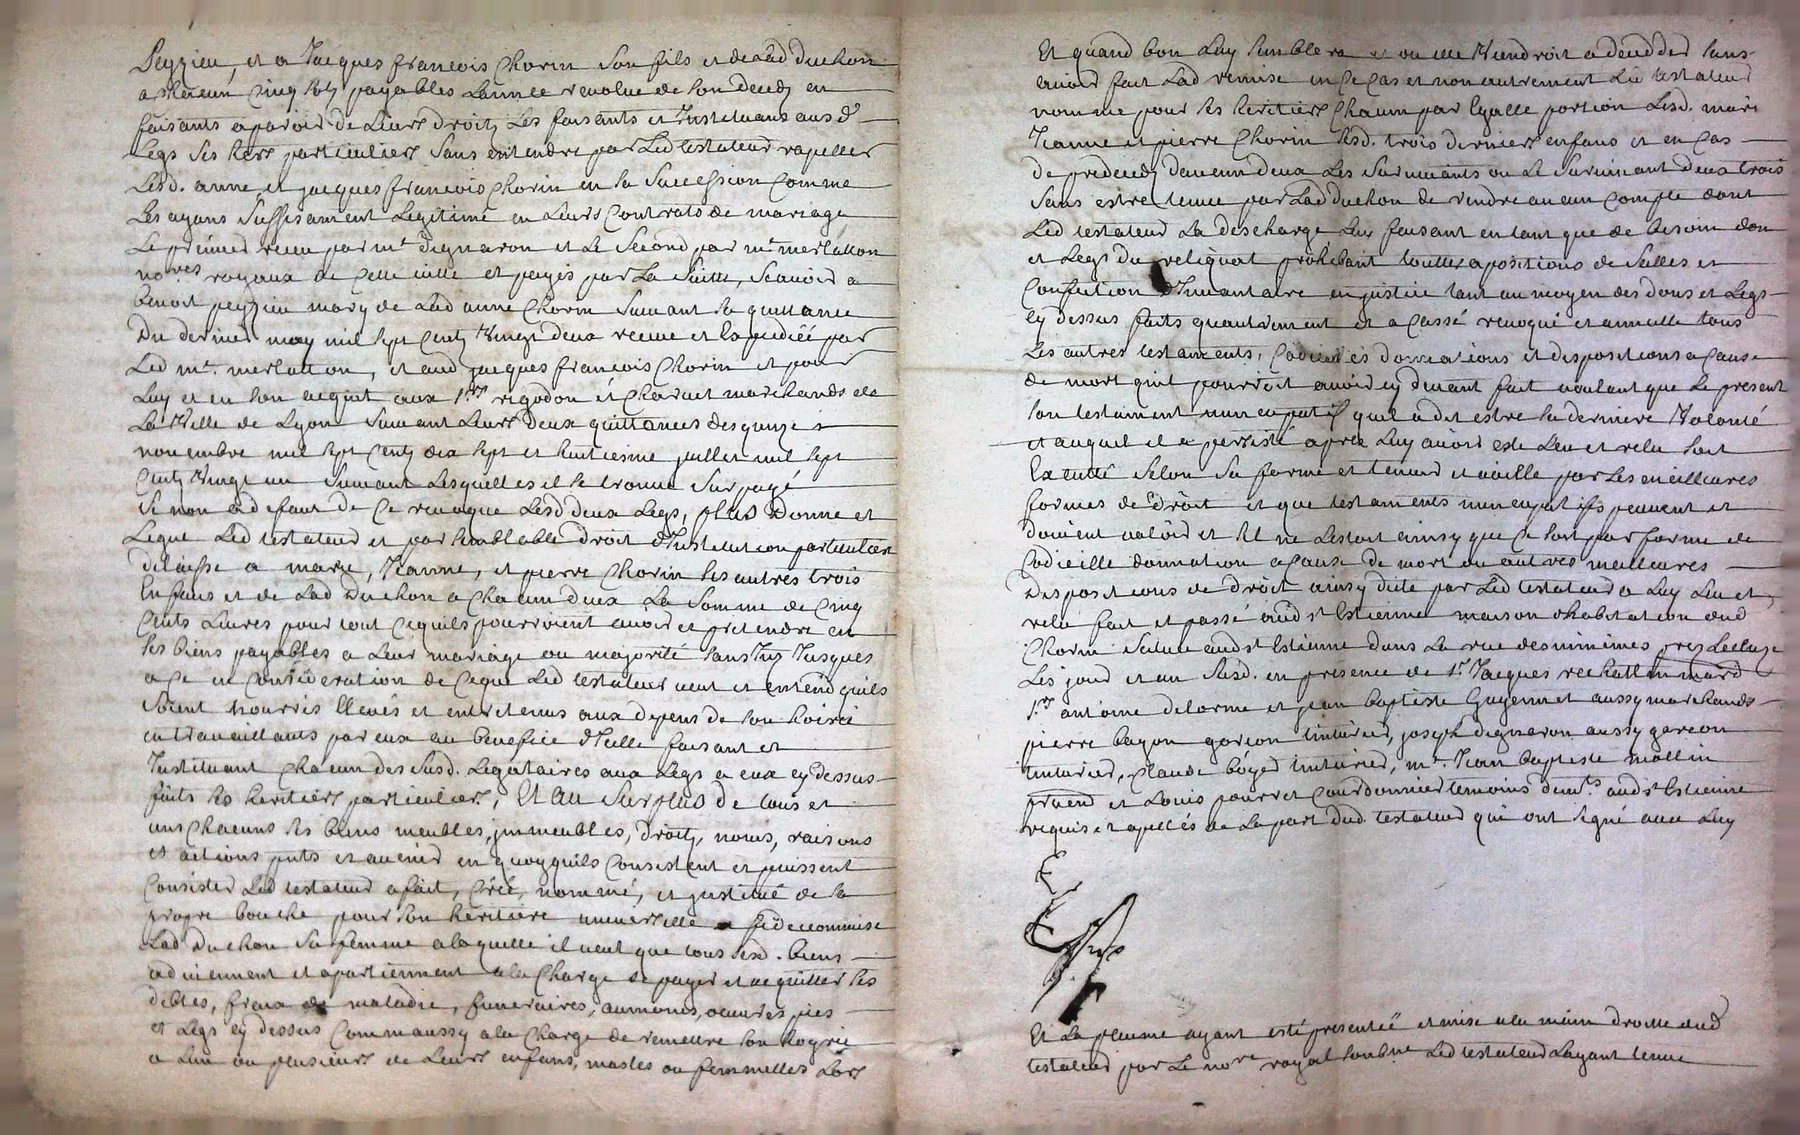 Peyzieu, et a Jacques francois Chorin son fils et de lad Duchon
a chacun cinq sols payables Lannée revolue de son deceds en
faisants aparoir de Leurs droits Les faisants et Instituans ausd
Legs ses hers particuliers sans entendre par Led testateur rapeller
Lesd. anne et jacques francois Chorin en sa succession comme
Les ayans suffisament Legitimé en Leurs Contrats de mariage
Le premier receu par mr dignaron et Le second par mr merlatton
nores royaux de cette ville et payés par La suitte, scavoir a
benoit peyzieu mary de Lad anne Chorin suivant sa quittance
du dernier may mil sept Cents Vingt deux receue et Expediée par
Led mr. merlatton, et aud jacques francois Chorin et pour
Luy et en son acquit aux srs rigodon et Charuet marchands de
La Ville de Lyon suivant Leurs deux quittances des quinze
novembre mil sept Cents dix sept et huitiesme juillet mil sept
Cents Vingt un suivant Lesquelles il se trouve surpayé
si non a defaut de ce revoque Lesd deux Legs, plus Donne et
Legue Led testateur et par semblable droit d'Institution particuliere
délaisse a marie, Jeanne, et pierre Chorin ses autres trois
Enfans et de Lad Duchon a chacun deux La somme de Cinq
Cents Livres pour tout ce quils pourroient avoir et pretendre en
ses biens payables a Leur mariage ou majorité sans Intz Jusques
a ce en consideration de ce que Led testateur veut et entend quils
soient nourris Elevés et entretenus aux depens de son hoirie
en travaillants par eux au benefice d'Icelle faisant et
Instituant chacun des susd. Legataires aux Legs a eux cy dessus
faits ses heritiers particuliers, Et au surplus de tous et
uns chacuns ses biens meubles, jmmeubles, droits, noms, raisons
et actions pnts et avenir en quoy quils Consistent et puissent
Consister Led testateur a fait, créé, nommé, et jnstitué de sa
propre bouche pour son heritiere universelle fideicommise
Lad Duchon sa femme a laquelle il veut que tous sesd. biens
adviennent et apartiennent a la charge de payer et acquitter ses
debtes, fraix de maladie, funeraires, aumones, oeuvres pies
et Legs cy dessus Comm aussy a la charge de remettre son hoyrie
a Lun ou plusieurs de Leurs enfans, masles ou femmelles Lors
Et quand bon Luy semblera et ou elle Viendroit a decedder sans
avoir fait Lad remise en ce cas et non autrement Led testateur
nomme pour ses heritiers chacun par Egalle portion Lesd. marie
Jeanne et pierre Chorin sesd. trois derniers enfans et en cas
de predeceds daucun deux Les survivants ou Le survivant deux trois
sans estre tenue par Lad duchon de rendre aucun compte dont
Led testateur La descharge Luy faisant en tant que de besoin don
et Legs du reliquat prohibant touttes apositions de scelles et
Confection d'Inventaire en justice tant au moyen des dons et Legs
cy dessus faits quautrement et a cassé revoqué et annulle tous
Les autres testaments, Codicilles donnations et dispositions a cause
de mort quil pourroit avoir cy devant fait voulant que Le present
son testament nuncupatif quil a dit estre sa derniere Volonté
et auquel il a persisté aprez Luy avoir esté Leu et relu soit
Exécuté selon sa forme et teneur et vaille par Les meilleures
formes de droit et que testaments nuncupatifs peuvent et
doivent valoir et sil ne Lestoit ainsy que ce soit par forme de
Codicille donnation a cause de mort ou autres meilleures
dispositions de droit ainsy dicté par Led testateur a Luy Leu et
relu fait et passé aud st Estienne maison d'habitation dud
Chorin scitue aud st Estienne dans La rue des minimes prez Lecluze
Les jour et an susd. en presence de sr. Jacques rechattin mard
srs antoine delorme et jean baptiste Guyennet aussy marchands
pierre bayon garcon tinturier, joseph dignaron aussy garcon
tinturier, Claude boyer tinturier, mr. Jean baptiste mollin
pruend et Louis pourret courdonnier temoins demts. aud st Estienne
requis et apellés de La part dud testateur qui ont signé avec Luy
Et La plume ayant esté presentée et mise a la main droitte dud
testateur par Le nore royal soubne Led testateur Layant tenue